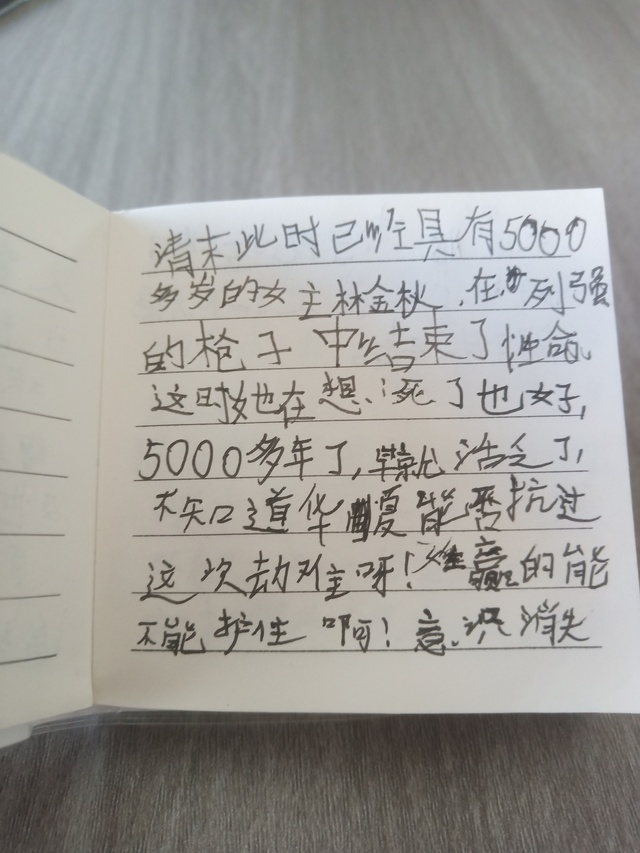 清末此时已经具有5000
多岁的女主林金秋,在列强
的枪子中结束了性命。
这时她在想:死了也好,
5000多年了,早就活乏了,
不知道华夏能否抗过
这次劫难呀!赢的能
不能护住啊!意识消失